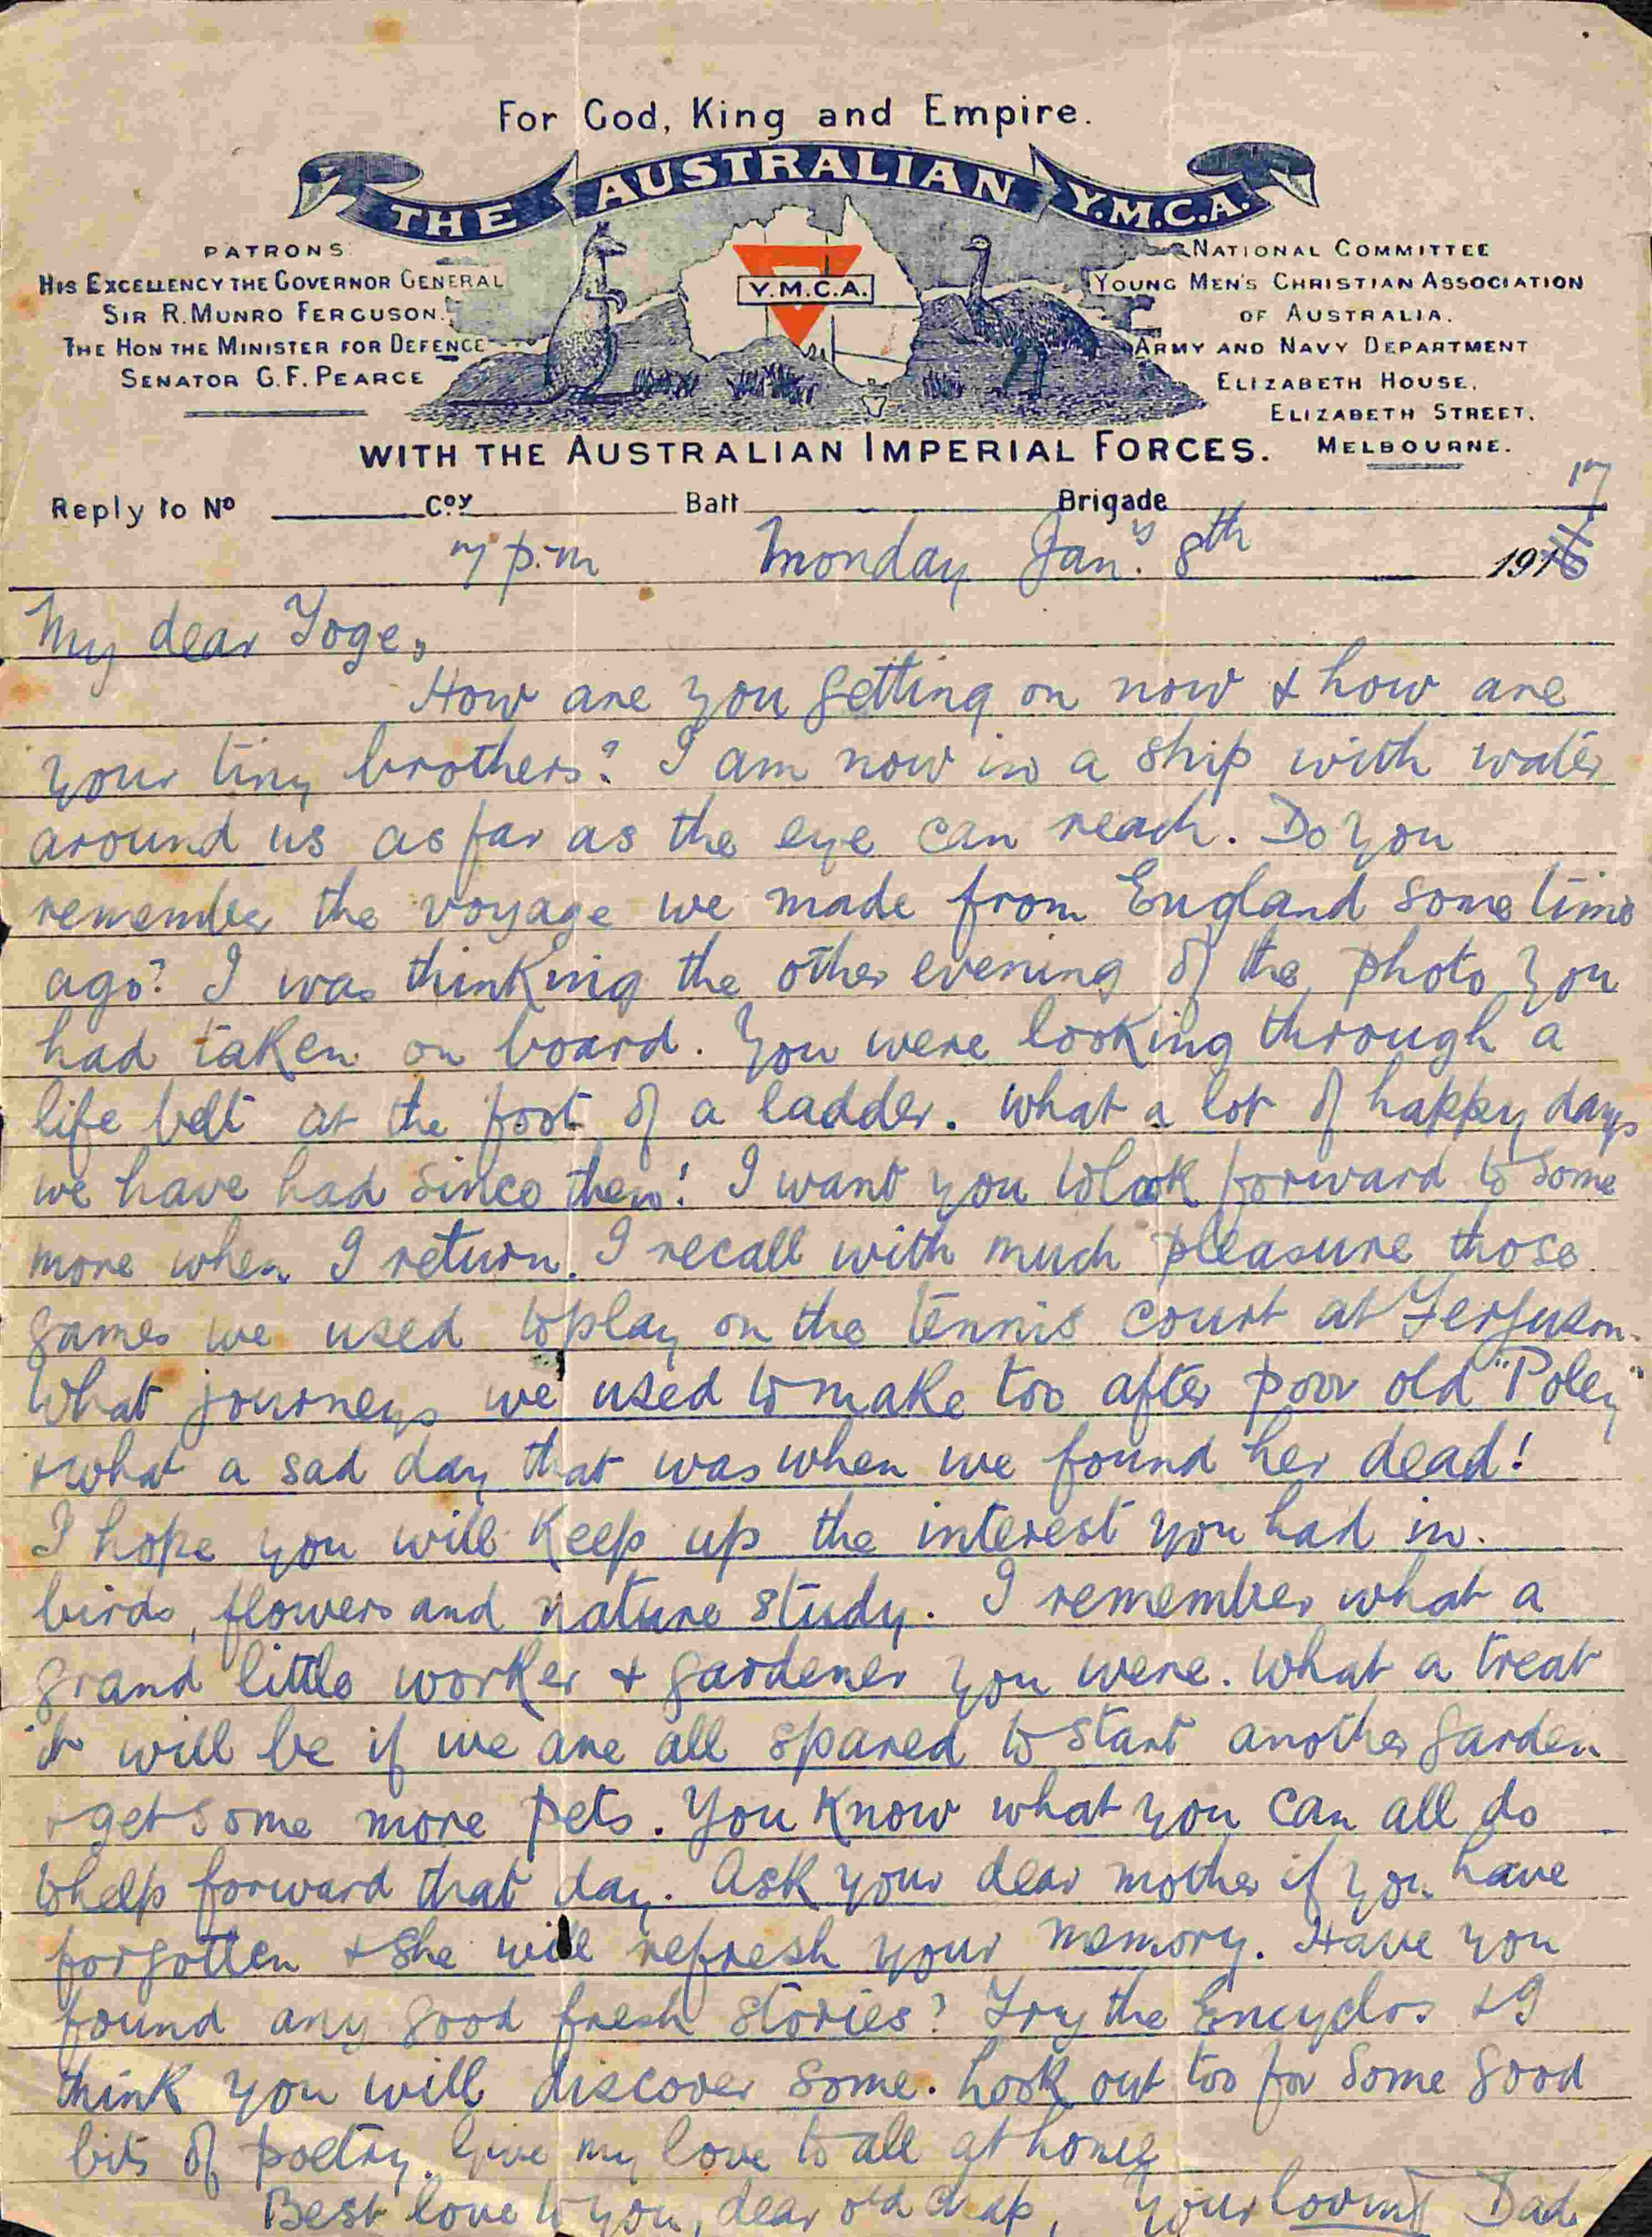 For God, King and Empire.
THE AUSTRALIAN Y.M.C.A.
PATRONS
HIS EXCELLENCY THE GOVERNOR GENERAL
SIR R. MUNRO FERGUSON.
THE HON THE MINISTER FOR DEFENCE
SENATOR G. F. PEARCE
Y.M.C.A.
NATIONAL COMMITTEE
YOUNG MEN'S CHRISTIAN ASSOCIATION
OF AUSTRALIA.
ARMY AND NAVY DEPARTMENT
ELIZABETH HOUSE,
ELIZABETH STREET,
MELBOURNE.
WITH THE AUSTRALIAN IMPERIAL FORCES.
Reply to No Coy Batt Brigade
17
7 p.m Monday Jany. 8th 1916
My dear Toge,
How are you getting on now & how are
your tiny brothers? I am now in a ship with water
around us as far as the eye can reach. Do you
remember the voyage we made from England some time
ago? I was thinking the other evening of the photo you
had taken on board. You were looking through a
life belt at the foot of a ladder. What a lot of happy days
we have had since then! I want you to look forward to some
more when I return. I recall with much pleasure those
games we used to play on the tennis court at Ferguson.
What journeys we used to make too after poor old "Poley"
& what a sad day that was when we found her dead!
I hope you will keep up the interest you had in
birds, flowers and nature study. I remember what a
grand little worker & gardener you were. What a treat
it will be if we are all spared to start another garden
& get some more pets. You know what you can all do
to help forward that day. Ask your dear mother if you have
forgotten & she will refresh your memory. Have you
found any good fresh stories? Try the Encyclos & I
think you will discover some. Look out too for some good
bits of poetry. Give my love to all at home
Best love to you, dear old chap, Your loving Dad